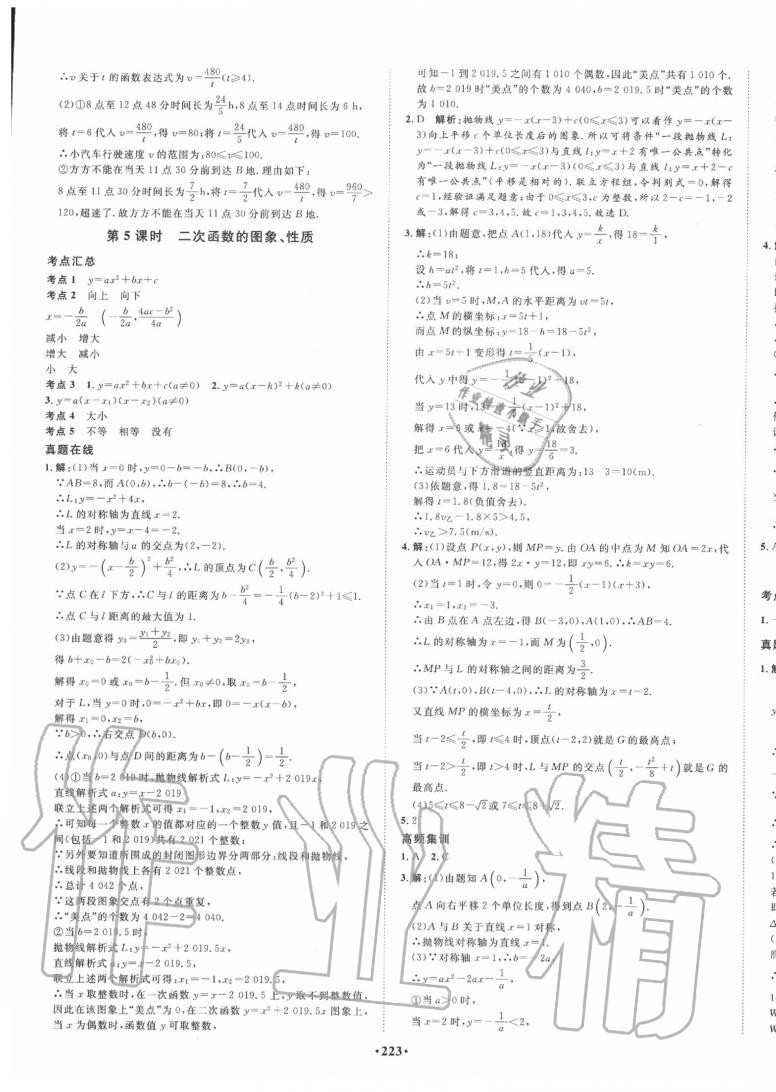 ∴v关于t的函数表达式为v=480/t(t≥4).
(2)①8点至12点48分时间长为24/5 h,8点至14点时间长为6 h,
将t=6代入v=480/t,得v=80;将t=24/5代入v=480/t,得v=100.
∴小汽车行驶速度v的范围为:80≤v≤100.
②方方不能在当天11点30分前到达B地.理由如下:
8点至11点30分时间长为7/2 h,将t=7/2代入v=480/t,得v=960/7>
120,超速了.故方方不能在当天11点30分前到达B地.
第5课时 二次函数的图象、性质
考点汇总
考点1 y=ax²+bx+c
考点2 向上 向下
x=-b/2a (-b/2a,(4ac-b²)/4a)
减小 增大
增大 减小
小 大
考点3 1.y=ax²+bx+c(a≠0) 2.y=a(x-h)²+k(a≠0)
3.y=a(x-x₁)(x-x₂)(a≠0)
考点4 大小
考点5 不等 相等 没有
真题在线
1.解:(1)当x=0时,y=0-b=-b,∴B(0,-b),
∵AB=8,而A(0,b),∴b-(-b)=8,∴b=4.
∴L:y=-x²+4x,
∴L的对称轴为直线x=2.
当x=2时,y=x-4=-2.
∴L的对称轴与a的交点为(2,-2).
(2)y=-(x-b/2)²+b²/4,∴L的顶点为C(b/2,b²/4).
∵点C在l下方,∴C与l的距离为b-b²/4=-1/4(b-2)²+1≤1.
∴点C与l距离的最大值为1.
(3)由题意得y₃=(y₁+y₂)/2,即y₁+y₂=2y₃,
得b+x₀-b=2(-x₀²+bx₀).
解得x₀=0或x₀=b-1/2.但x₀≠0,取x₀=b-1/2,
对于L,当y=0时,0=-x²+bx,即0=-x(x-b),
解得x₁=0,x₂=b,∴右交点D(b,0).
∴点(x₀,0)与点D间的距离为b-(b-1/2)=1/2.
(4)①当b=2 019时,抛物线解析式L:y=-x²+2 019x,
直线解析式a:y=x-2 019
联立上述两个解析式可得x₁=-1,x₂=2 019,
∴可知每一个整数x的值都对应的一个整数y值,且-1和2 019之
间(包括-1和2 019)共有2 021个整数;
∵另外要知道所围成的封闭图形边界分两部分:线段和抛物线,
∴线段和抛物线上各有2 021个整数点,
∴总计4 042个点,
∵这两段图象交点有2个点重复,
∴“美点”的个数为4 042-2=4 040.
②当b=2 019.5时,
抛物线解析式L:y=-x²+2 019.5x,
直线解析式a:y=x-2 019.5,
联立上述两个解析式可得:x₁=-1,x₂=2 019.5,
∴当x取整数时,在一次函数y=x-2 019.5上,y取不到整数值,
因此在该图象上“美点”为0,在二次函数y=-x²+2 019.5x图象上,
当x为偶数时,函数值y可取整数,
可知-1到2 019.5之间有1 010个偶数,因此“美点”共有1 010个.
故b=2 019时“美点”的个数为4 040,b=2 019.5时“美点”的个数
为1 010.
2.D 解析:抛物线y=-x(x-3)+c(0≤x≤3)可以看作y=-x(x-
3)向上平移c个单位长度后的图象.所以可将条件“一段抛物线L:
y=-x(x-3)+c(0≤x≤3)与直线l:y=x+2有唯一公共点”转化
为“一段抛物线L:y=-x(x-3)(0≤x≤3)与直线l:y=x+2-c
有唯一公共点”(平移是相对的).联立方程组,令判别式=0,解得
c=1,经验证满足题意;由于0≤x≤3,c为整数,所以2-c=-1,-2
或-3,解得c=3,4,5.故c=1,3,4,5.故选D.
3.解:(1)由题意,把点A(1,18)代入y=k/x,得18=k/1,
∴k=18;
设h=at²,将t=1,h=5代入,得a=5.
∴h=5t².
(2)当v=5时,M,A的水平距离为vt=5t,
∴点M的横坐标:x=5t+1,
而点M的纵坐标:y=18-h=18-5t²,
由x=5t+1变形得t=1/5(x-1),
代入y中得y=-1/5(x-1)²+18,
当y=13时,13=-1/5(x-1)²+18,
解得x=6或x=-4(故舍去),
把x=6代入y=18/x,得y=18/6=3.
∴运动员与下方滑道的竖直距离为:13-3=10(m).
(3)依题意,得1.8=18-5t².
解得t=1.8(负值舍去).
∴1.8v乙-1.8×5>4.5,
∴v乙>7.5(m/s).
4.解:(1)设点P(x,y),则MP=y.由OA的中点为M知OA=2x,代
入OA·MP=12,得2x·y=12,即xy=6.∴k=xy=6.
(2)当t=1时,令y=0,则0=-1/2(x-1)(x+3),
∴x₁=1,x₂=-3.
∴由B点在A点左边,得B(-3,0),A(1,0),∴AB=4.
∴L的对称轴为x=-1,而M为(1/2,0).
∴MP与L的对称轴之间的距离为3/2.
(3)∵A(t,0),B(t-4,0),∴L的对称轴为x=t-2.
又直线MP的横坐标为x=t/2,
当t-2≤t/2,即t≤4时,顶点(t-2,2)就是G的最高点;
当t-2>t/2,即t>4时,L与MP的交点(t/2,-t²/8+t)就是G的
最高点.
(4)5≤t≤8-√2或7≤t≤8+√2.
5.2
高频集训
1.A 2.C
3.解:(1)由题知A(0,-1/a),
点A向右平移2个单位长度,得到点B(2,-1/a).
(2)A与B关于直线x=1对称,
∴抛物线对称轴为直线x=1.
(3)∵对称轴x=1,∴b=-2a,
∴y=ax²-2ax-1/a,
①当a>0时,
当x=2时,y=-1/a<2,
·223·
作业精
作业
作业检查小能手
精灵